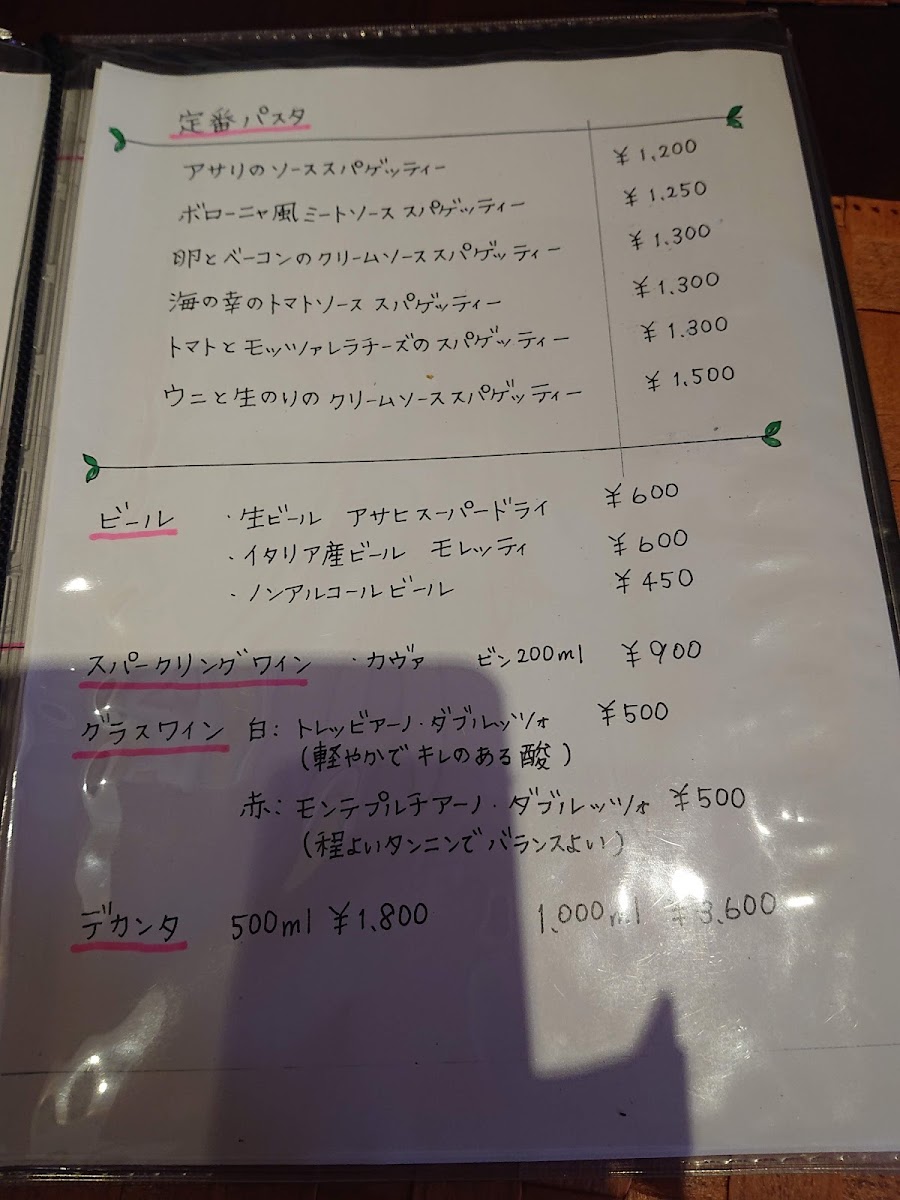 定番パスタ
アサリのソーススパゲッティー ¥1,200
ボローニャ風ミートソース スパゲッティー ¥1.250
卵とベーコンのクリームソーススパゲッティー ¥1.300
海の幸のトマトソース スパゲッティー ¥1.300
トマトとモッツァレラチーズのスパゲッティー ¥1.300
ウニと生のりのクリームソーススパゲッティー ¥1,500
ビール ・生ビール アサヒスーパードライ ¥600
・イタリア産ビール モレッティ ¥600
・ノンアルコールビール ¥450
スパークリングワイン ・カヴァ ビン200ml ¥900
グラスワイン 白: トレッビアーノ・ダブルッツォ ¥500
(軽やかでキレのある酸)
赤: モンテプルチアーノ・ダブルッツォ ¥500
(程よいタンニンでバランスよい)
デカンタ 500ml ¥1,800 1,000ml ¥3,600